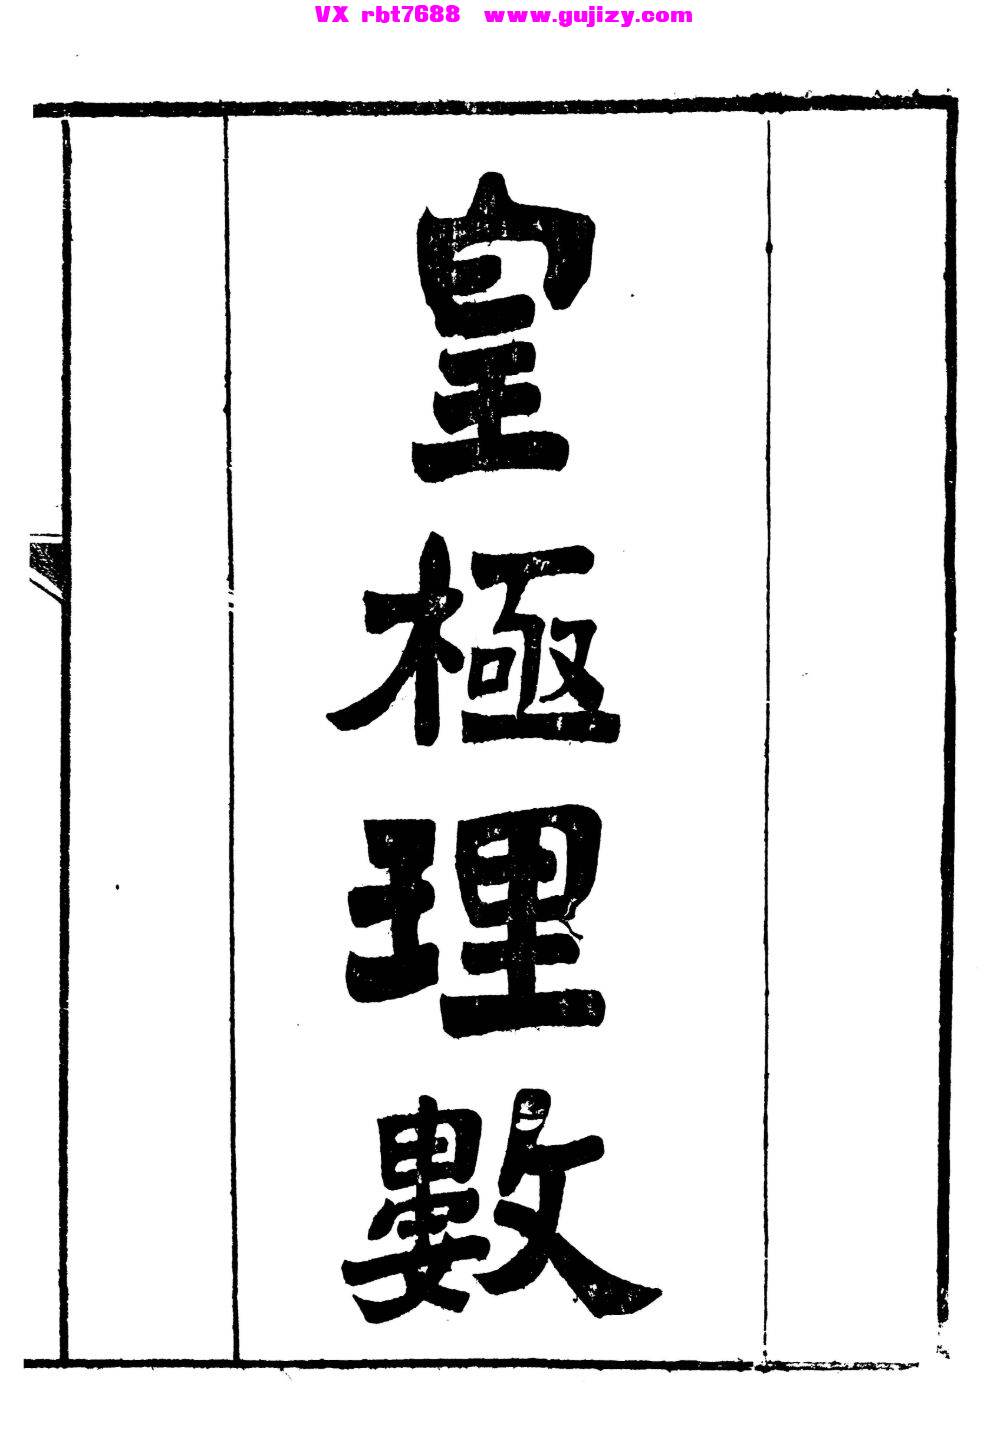 VX rbt7688 www.gujizy.com
皇極理數